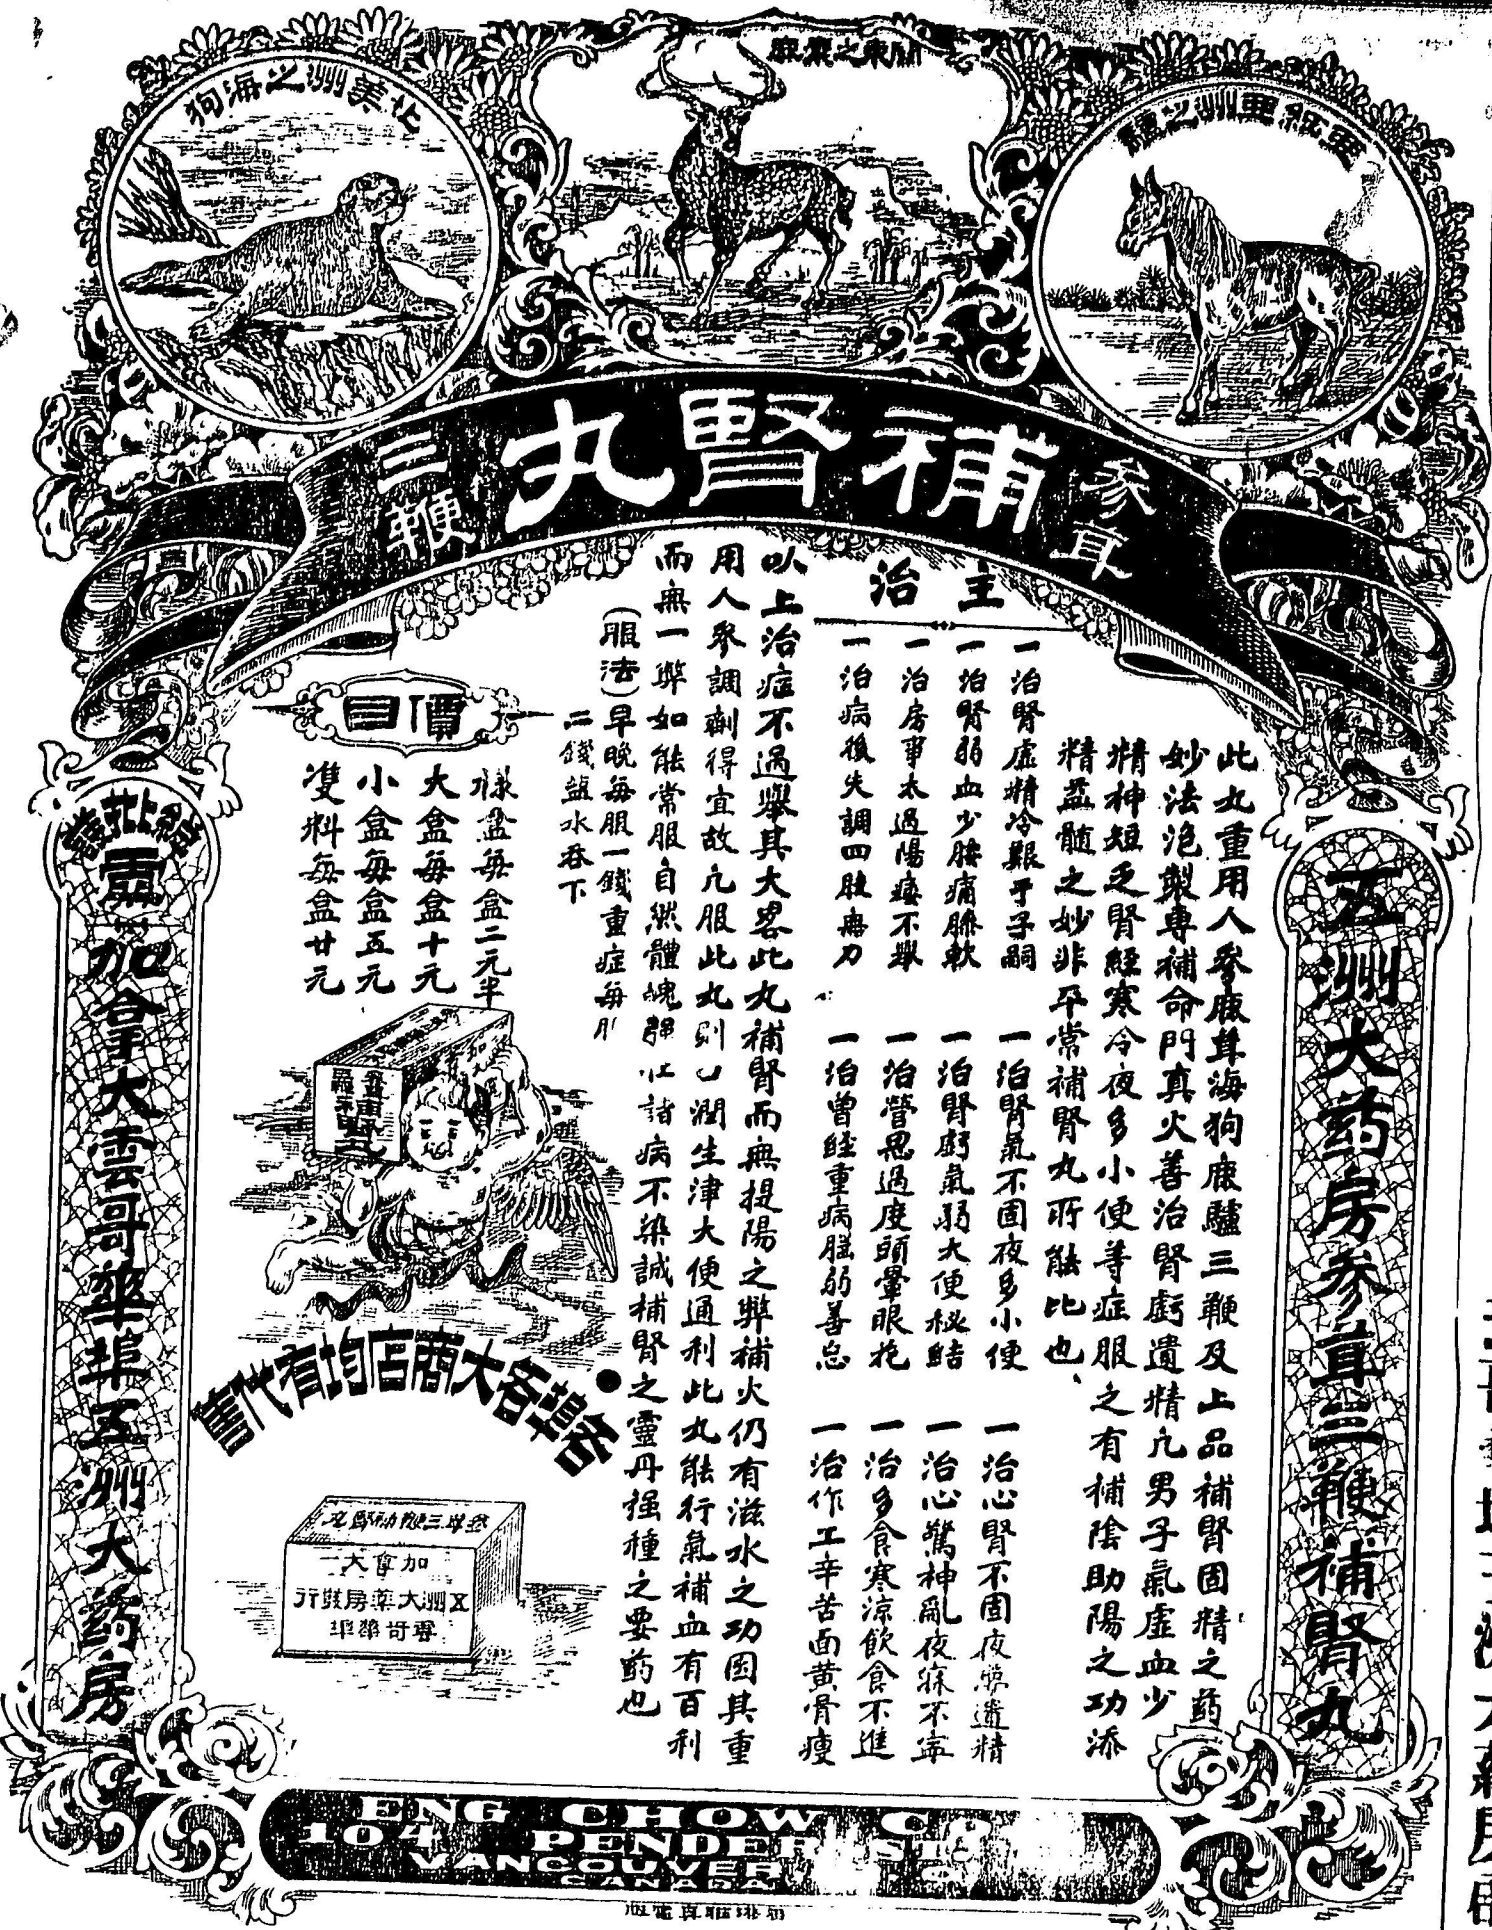 北美洲之海狗
關東之
亞洲之驢
參茸
補腎丸
三鞭
五洲大药房參茸三鞭補腎丸
此丸重用人參鹿茸海狗鹿驢三鞭及上品補腎固精之药
妙法泡製專補命門真火善治腎虧遺精凢男子氣虛血少
精神短乏腎經寒冷夜多小便等症服之有補陰助陽之功添
精益髓之妙非平常補腎丸所能比也
主治
一治腎虛精冷艱于子嗣
一治腎弱血少腰痛脚軟
一治房事太過陽痿不舉
一治病後失調四肢無力
一治腎氣不固夜多小便
一治腎虧氣弱大便秘結
一治營思過度頭暈眼花
一治曾經重病腦弱善忘
一治心腎不固夜夢遺精
一治心驚神亂夜寐不寧
一治多食寒涼飲食不進
一治作工辛苦面黄骨瘦
以上治症不過舉其大畧此丸補腎而無提陽之弊補火仍有滋水之功因其重
用人參調劑得宜故凢服此丸則潤生津大便通利此丸能行氣補血有百利
而無一弊如能常服自然體魄強壯諸病不染誠補腎之靈丹强種之要药也
(服法)早晚每服一錢重症每服
二錢盐水吞下
價目
樣盒每盒二元半
大盒每盒十元
小盒每盒五元
雙料每盒廿元
各埠各大商店均有代售
參茸三鞭補腎丸
加拿大
五洲大藥房發行
雲哥華埠
總批發處
加拿大雲哥華埠五洲大药房
ENG CHOW CO
104 PENDER ST
VANCOUVER
CANADA